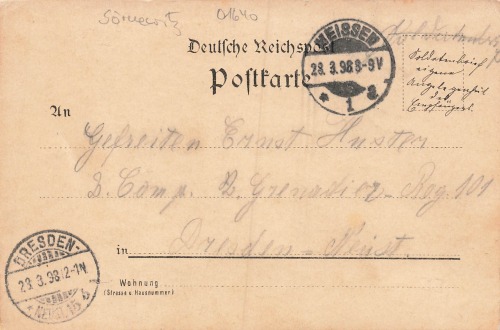 Sörnewitz 01640
Deutsche Reichspost
Postkarte
MEISSEN
28.3.98 8-9V
* 1 a
Soldatenbrief
eigene
Angelegenheit
des
Empfängers.
An
Gefreiten Ernst Huster
2. Comp. 2. Grenadier-Reg. 101
in Dresden-Neust.
DRESDEN-
28.3.98 12-1N
Wohnung
(Strasse u. Hausnummer)